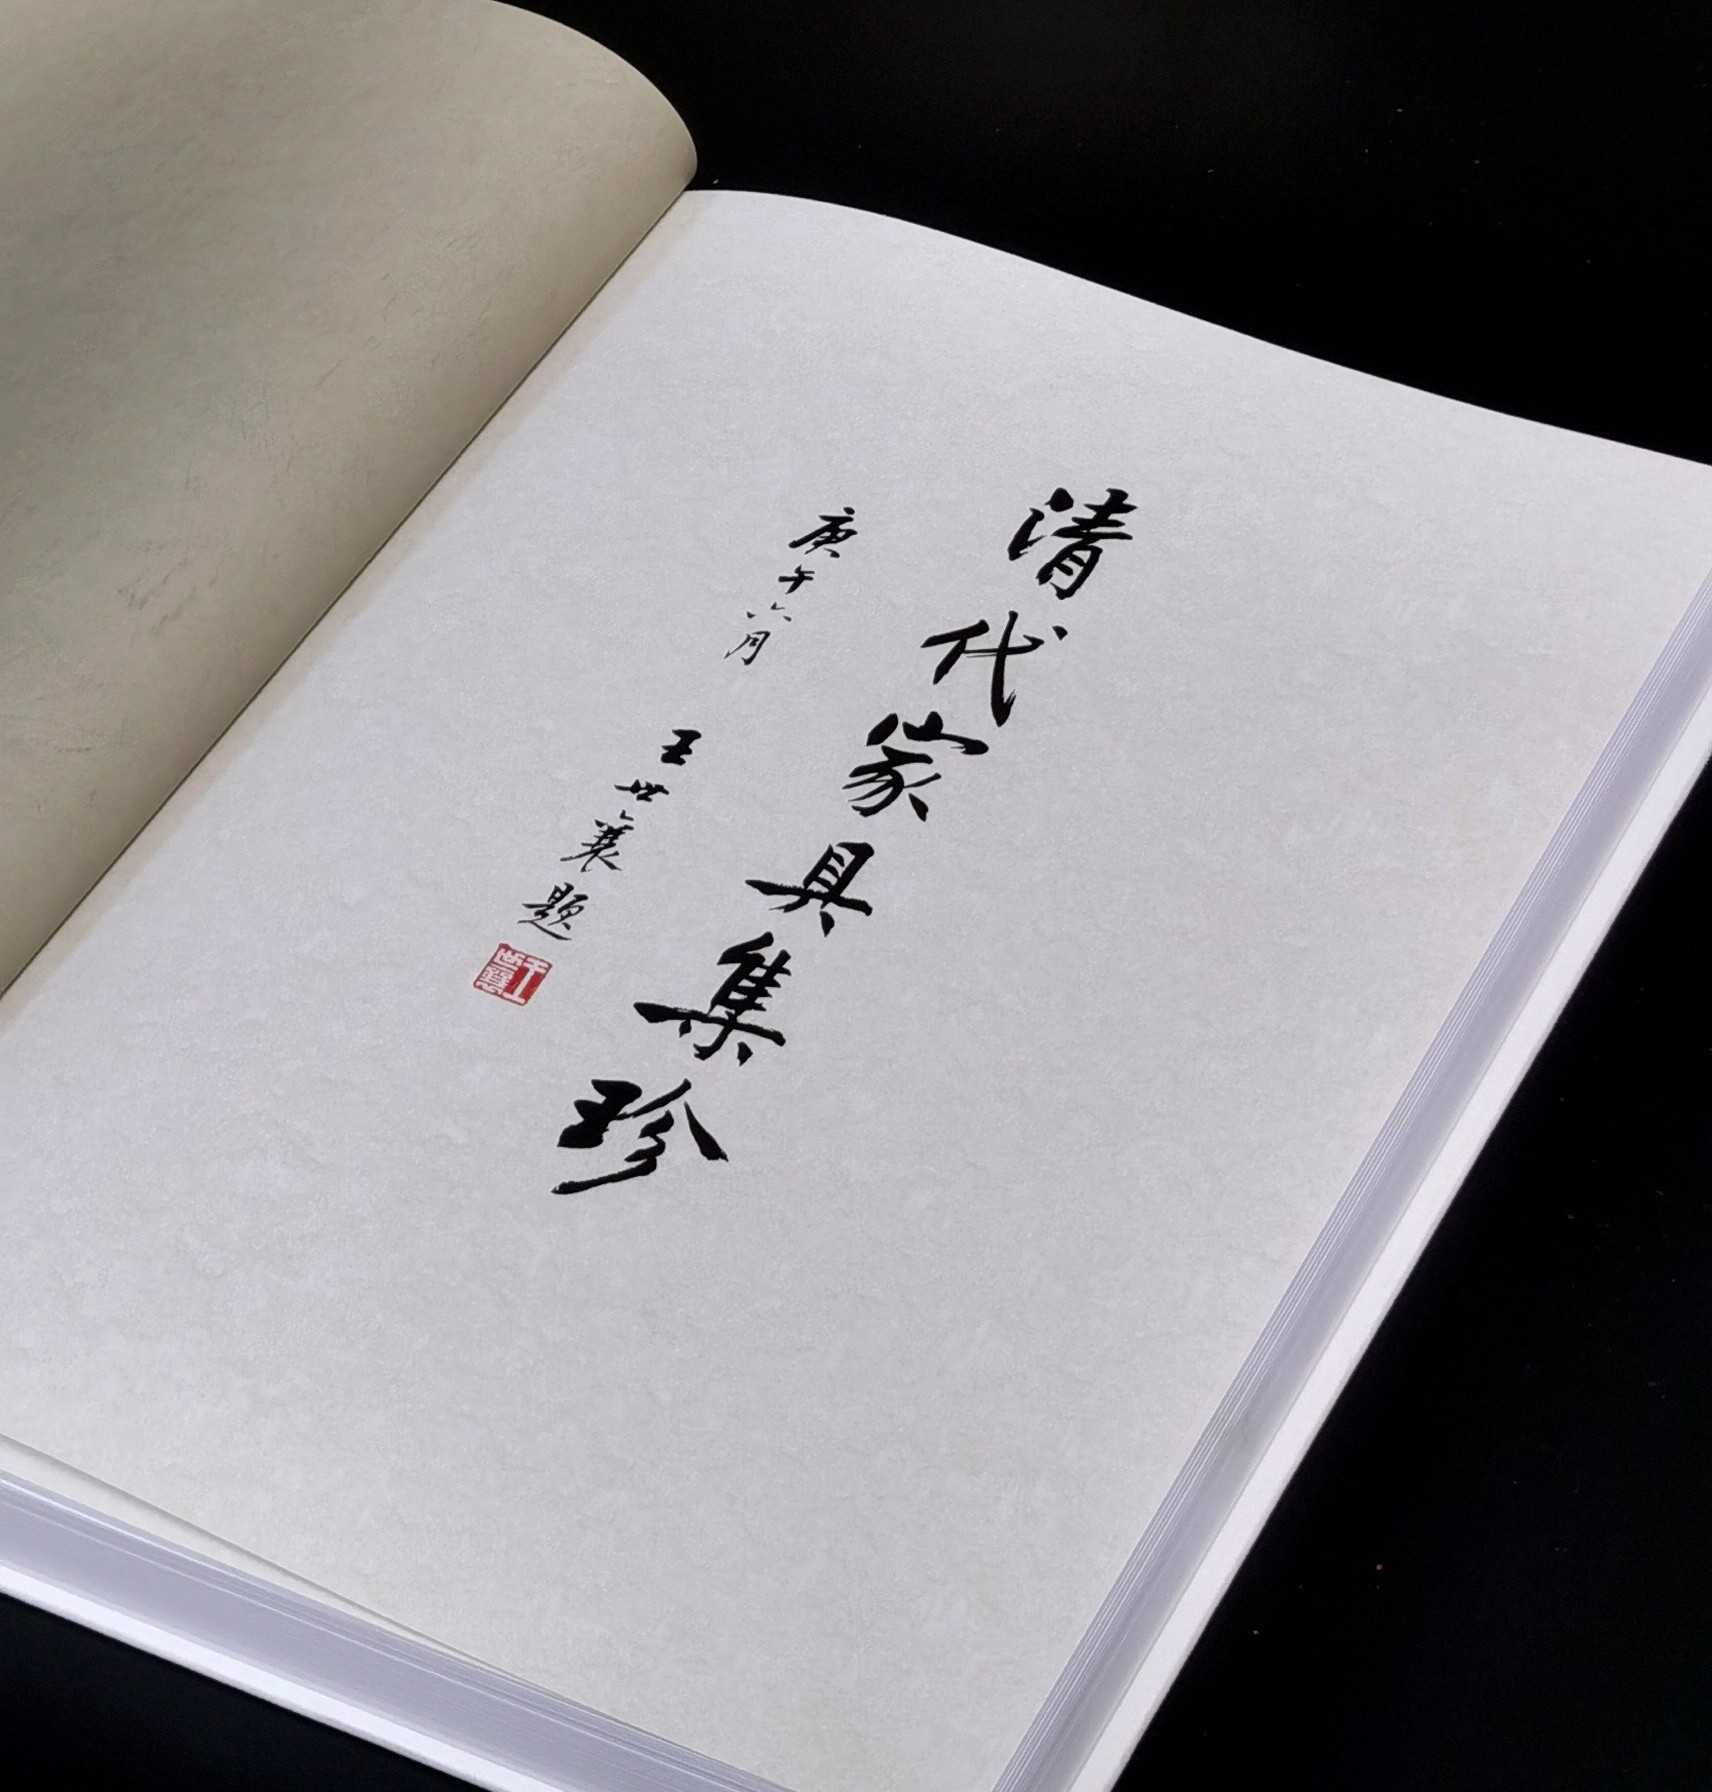 清代家具集珍
庚午六月 王世襄題
王世襄